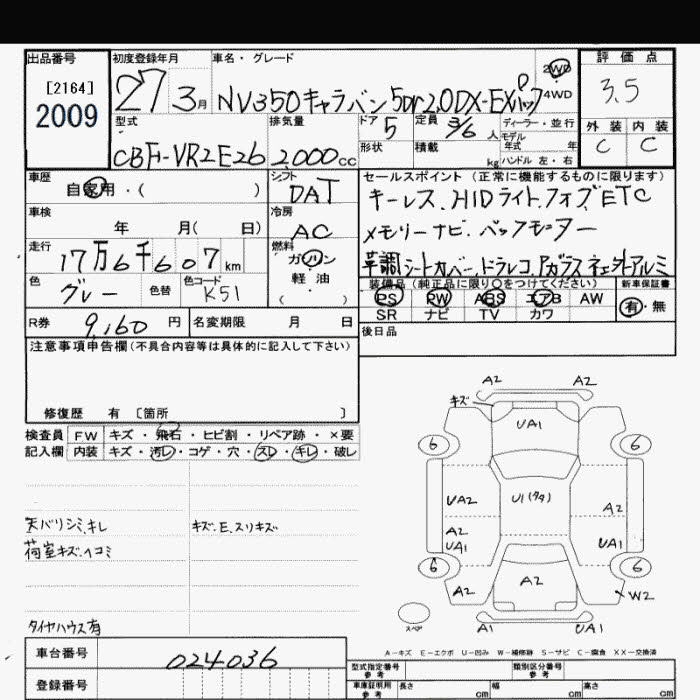 出品番号 初度登録年月 車名・グレード 2WD 4WD 評価点
[2164] 27 3月 NV350キャラバン 5Dr 2.0DX-EXパック 3.5
2009 型式 排気量 ドア 定員 ディーラー・並行 外装 内装
CBF-VR2E26 2000cc 5 3/6人 モデル年式 年 C C
形状 積載 kg ハンドル 左・右
車歴 シフト セールスポイント(正常に機能するものに限ります)
自家用・( ) DAT キーレス.HIDライト.フォグ.ETC
車検 冷房 メモリーナビ.バックモーター
年 月( 日) AC 革調シートカバー.ドラレコ.Pガラス 社外アルミ
走行 燃料
17万6千607km ガソリン・軽油
色 グレー 色替 色コード K51
装備品(純正品に限り〇をつけてください) 新車保証書
PS PW ABS エアB AW 有・無
SR ナビ TV カワ
R券 9,160円 名変期限 月 日 後日品
注意事項申告欄(不具合内容等は具体的に記入して下さい)
修復歴 有 〔箇所 〕
検査員 FW キズ・飛石・ヒビ割・リペア跡・×要
記入欄 内装 キズ・汚レ・コゲ・穴・スレ・キレ・破レ
天バリシミ、キレ キズ.E.スリキズ
荷室キズ.ヘコミ
タイヤハウス有
A2 A2
キズ
UA1
6 6
UA2 U1(タタ) A2
A2
UA1 UA1
6 6
A2 A2 W2
スペア A1 UA1
A-キズ E-エクボ U-凹み W-補修跡 S-サビ C-腐食 XX-交換済
車台番号 024036 型式指定番号 参考 類別区分番号 参考
登録番号 車庫証明用 参考 長さ cm 幅 cm 高さ cm